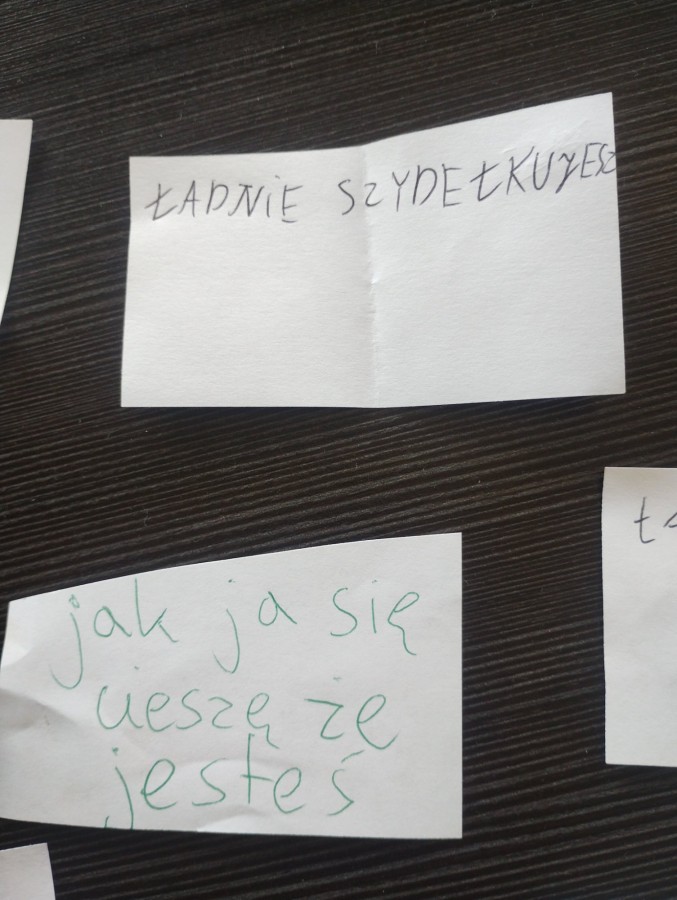 ŁADNIE SZYDEŁKUJESZ
jak ja się
cieszę że
jesteś